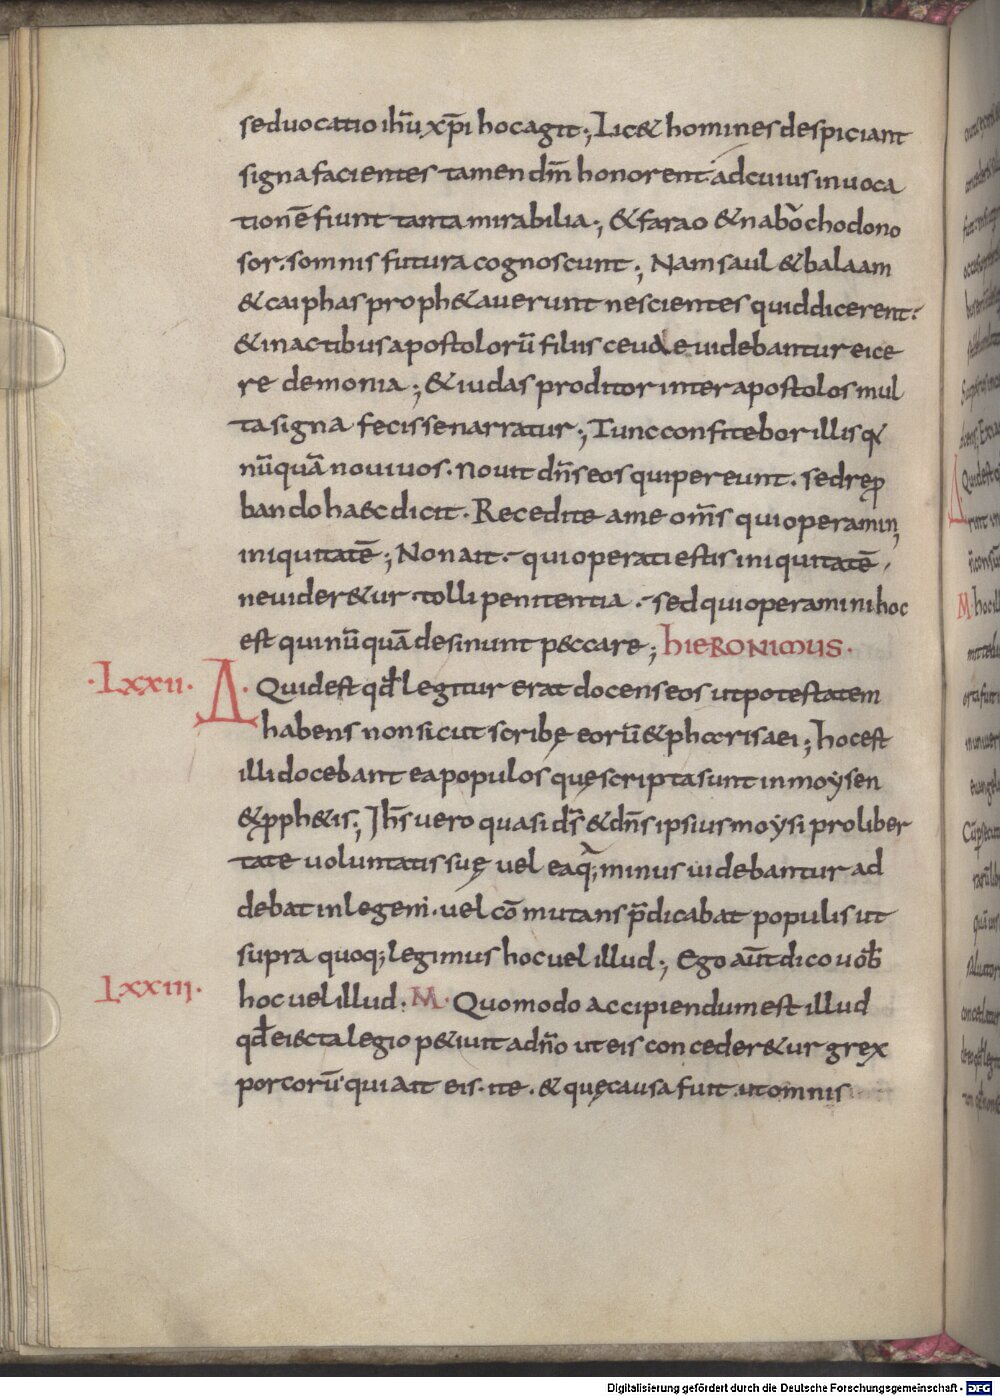 seduocatio ihū xp̄i hocagit; Lic& homines despiciant
signa facientes tamen dm̄ honorent adcuius inuoca
tionē fiunt tanta mirabilia; & farao & nabochodono
sor. somnis futura cognoscunt; Nam saul & balaam
& caiphas proph&auerunt nescientes quid dicerent.
& in actibus apostolorū filiis ceuae uidebantur eice
re demonia; & iudas proditor inter apostolos mul
ta signa fecisse narratur; Tunc confitebor illis q
nūquā noui uos. Nouit dn̄s eos qui pereunt. sed rep
bando haec dicit. Recedite a me om̄s qui operamin
iniquitatē; Non ait. qui operati estis iniquitatē,
ne uider&ur tolli penitentia. sed qui operamini hoc
est qui nūquā desinunt peccare; hieRoNimus.
.Lxxii. Δ. Quid est qđ legitur erat docens eos ut potestatem
habens non sicut scribę eorū & pharisaei; hoc est
illi docebant ea populos quę scripta sunt in moysen
& pph&is; Ih̄s uero quasi ds̄ & dn̄s ipsius moysi pro liber
tate uoluntatis suę uel eaq; minus uidebantur ad
debat in legem. uel cōmutans p̄dicabat populis ut
supra quoq; legimus hoc uel illud; Ego aūt dico uob̄
Lxxiii. hoc uel illud. M. Quomodo accipiendum est illud
qđ eiecta legio p&iuit ad dn̄o ut eis conceder&ur grex
porcorū qui ait eis. ite. & quę causa fuit ut omnis
Digitalisierung gefördert durch die Deutsche Forschungsgemeinschaft - DFG